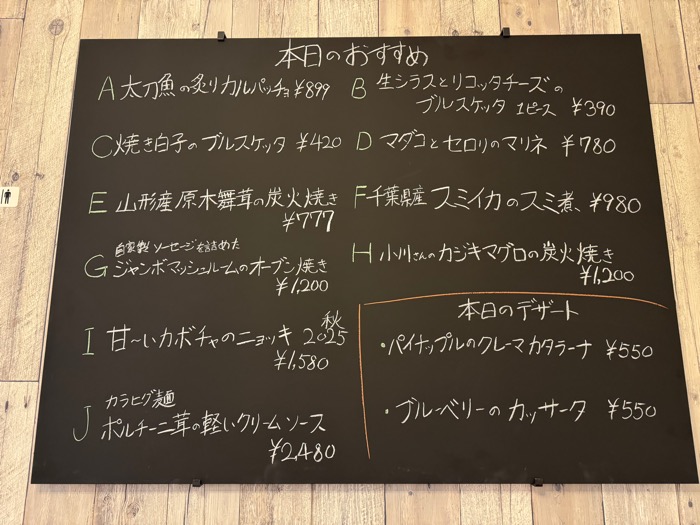 本日のおすすめ
A 太刀魚の炙りカルパッチョ ¥899
B 生シラスとリコッタチーズの
ブルスケッタ 1ピース ¥390
C 焼き白子のブルスケッタ ¥420
D マダコとセロリのマリネ ¥780
E 山形産 原木舞茸の炭火焼き
¥777
F 千葉県産 スミイカのスミ煮 ¥980
自家製ソーセージを詰めた
G ジャンボマッシュルームのオーブン焼き
¥1,200
H 小川さんのカジキマグロの炭火焼き
¥1,200
I 甘〜いカボチャのニョッキ 2025秋
¥1,580
カラヒグ麺
J ポルチーニ茸の軽いクリームソース
¥2,480
本日のデザート
・パイナップルのクレーマカタラーナ ¥550
・ブルーベリーのカッサータ ¥550